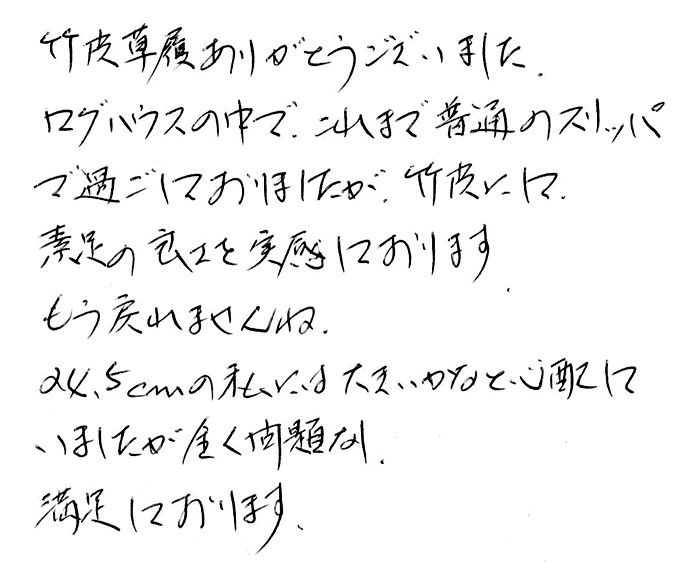 竹皮草履ありがとうございました.
ログハウスの中で、これまで普通のスリッパ
で過ごしておりましたが、竹皮にして、
素足の良さを実感しております.
もう戻れませんね.
24.5cmの私には大きいかなと心配して
いましたが全く問題なし.
満足しております.